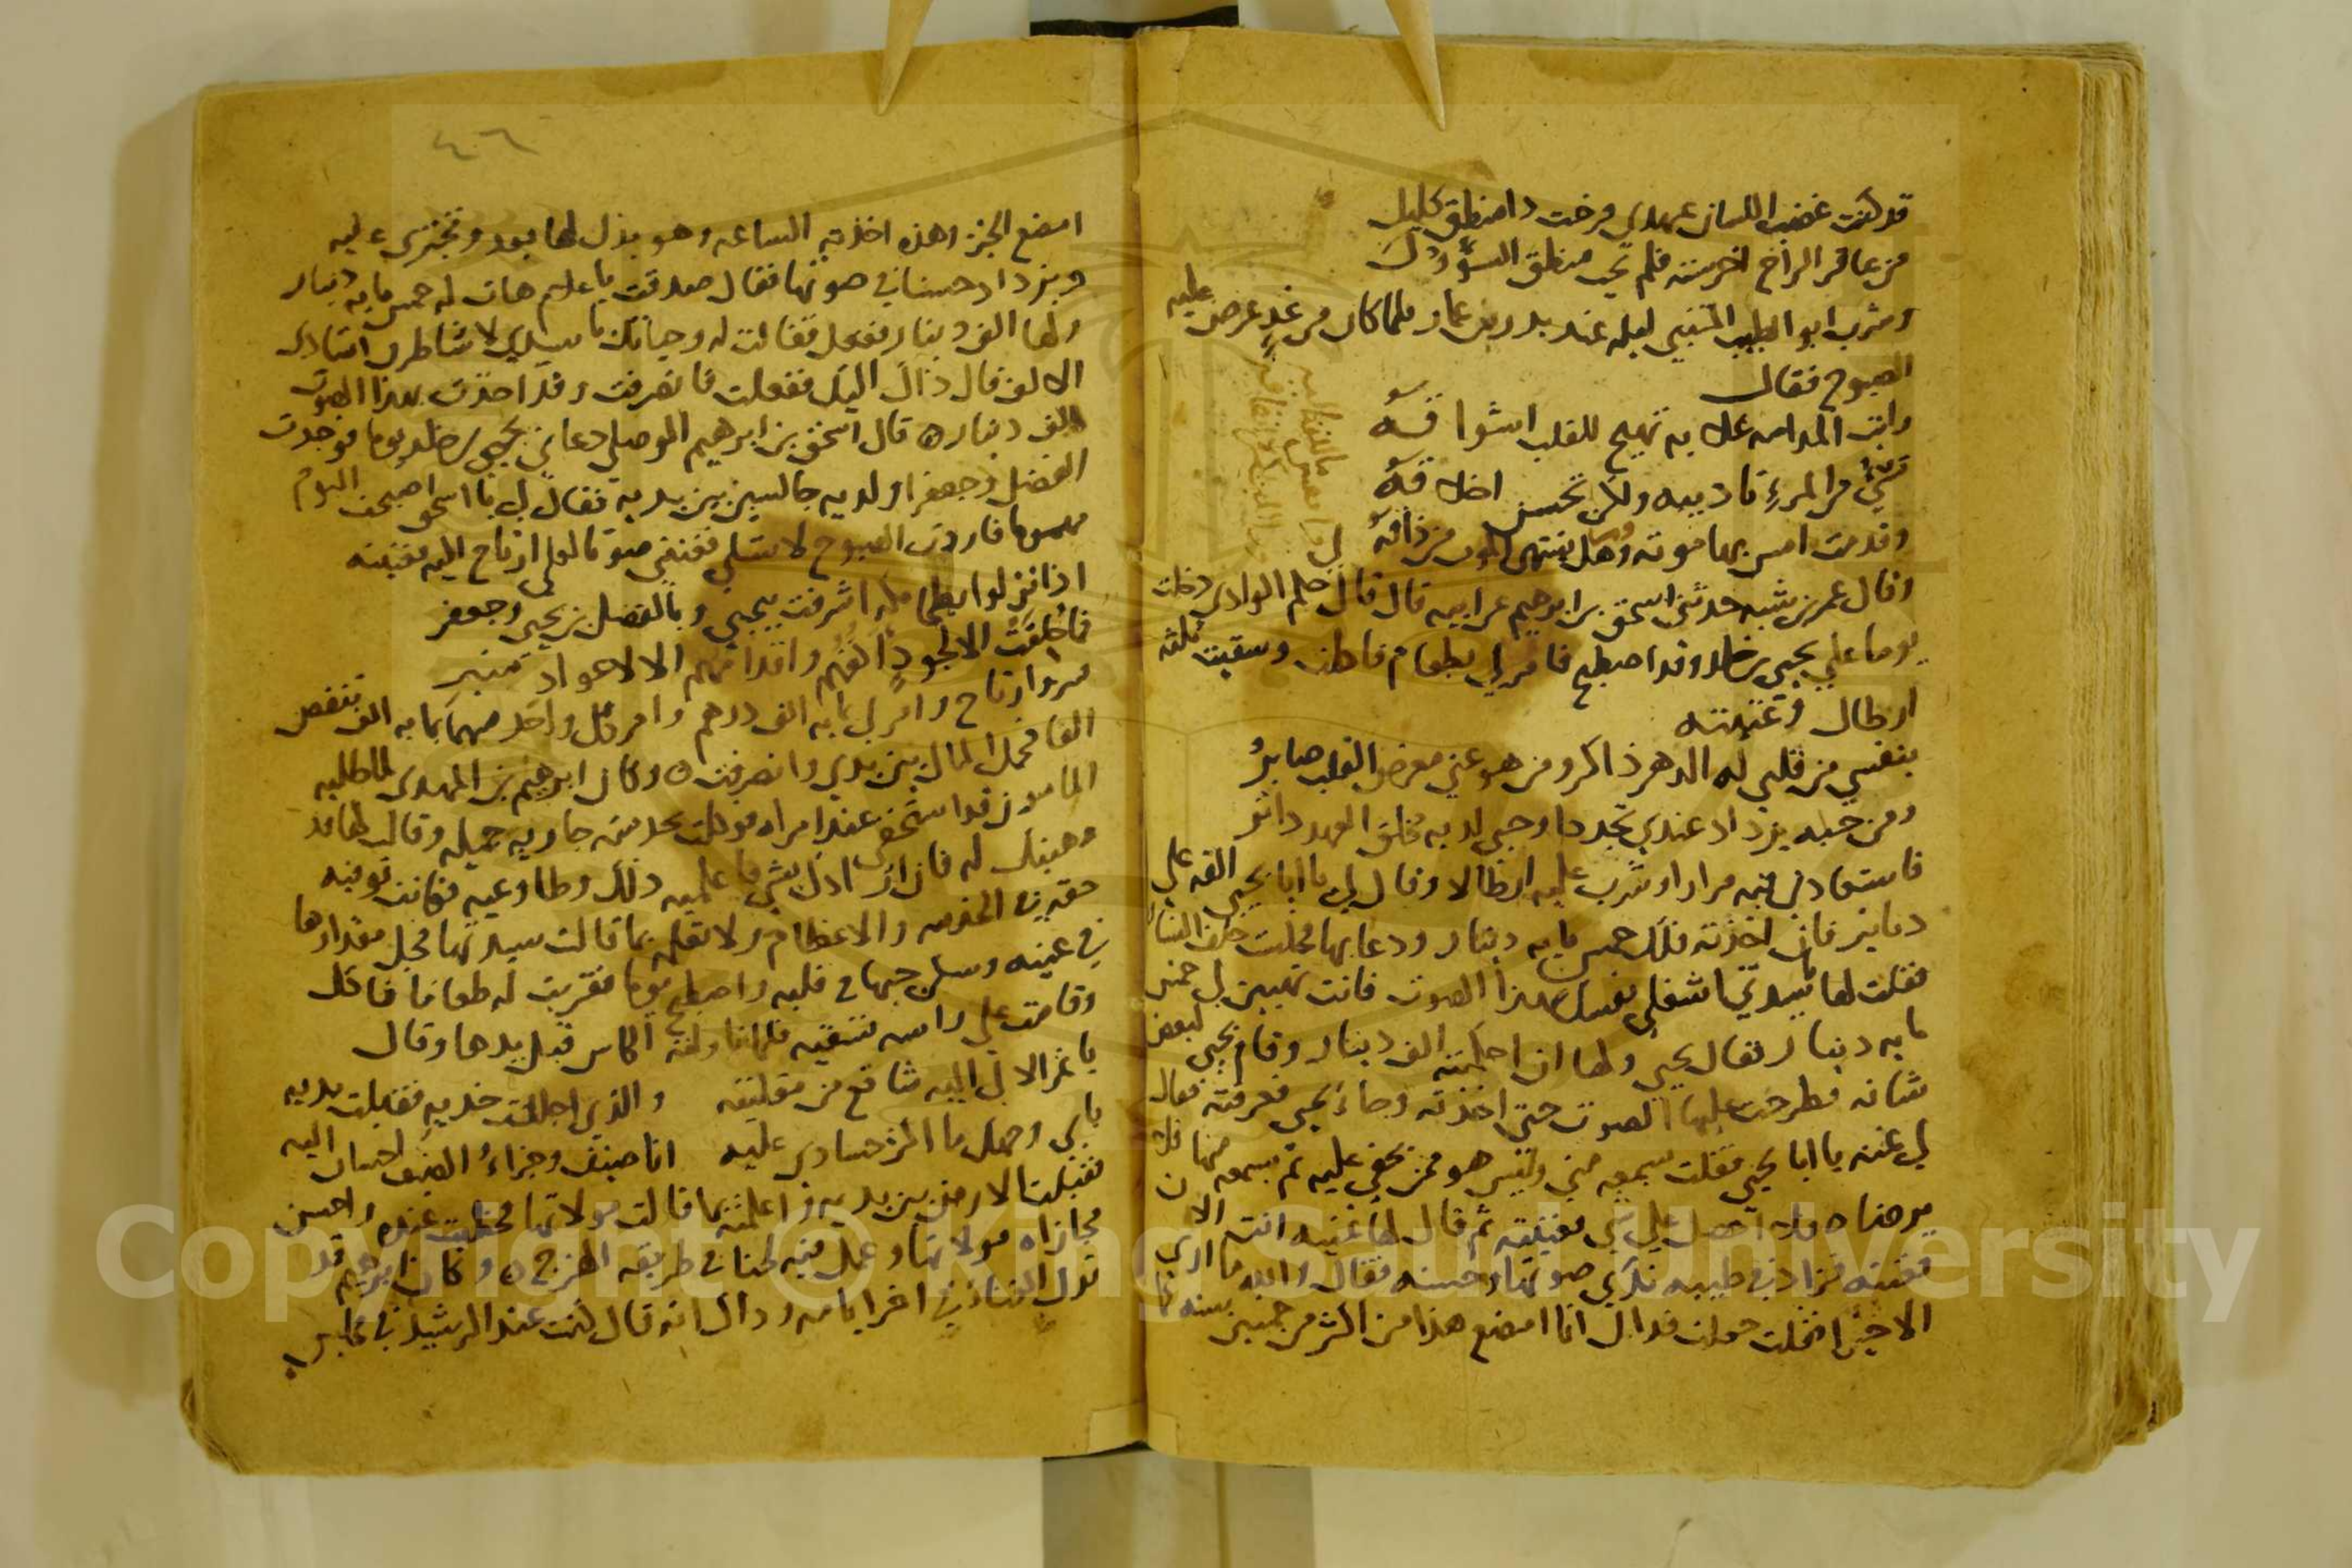 قد كنت عضب اللسان عهدى فرحت ذا منطق كليل
من عاقر الراح اخرسته فلم يجب منطق السؤول
وشرب ابو الطيب المتنبي ليله عند بدر بن عمار فلما كان من غد عرض عليه
الصبوح فقال
رايت المدامه غلابه تهيج للقلب اشواقه
تسئ من المرء تاديبه ولكن تحسن اخلاقه
وقد مت امس بها موته وهل يشتهى الموت من ذاقه
وقال عمر بن شبه حدثني اسحق بن ابرهيم عن ابيه قال قال حكم الوادى دخلت
يوما علي يحيى بن خالد وقد اصطبح فامر لي بطعام فاكلت وسقيت ثلثه
ارطال وغنيته
بنفسي من قلبي له الدهر ذاكر ومن هو عني معرض القلب صابر
ومن حبه يزداد عندي تجددا وحبي لديه مخلق العهد داثر
فاستعادني فيه مرارا وشرب عليه ارطالا وقال لي يا ابا يحيى القه علي
دنانير فان اخذته فلك خمس مايه دينار ودعا بها فجلست خلف الستار
فقلت لها يا سيدتي اشغلي نفسك بهذا الصوت فانت تهبين لي خمس
مايه دينار فقال يحيى ولها ان احكمته الف دينار وقام يحيى لبعض
شانه فطرحت عليها الصوت حتى اخذته وجا يحيى فعرفته فقال
لي غنه يا ابا يحيى فقلت يسمعه مني وليس هو ممن يخفي عليه ثم يسمعه منها فلا
يرضاه فلا احصل علي شي فغنيته ثم قال لها غنيه انت الان
فغنته فزاد في طيبه ندى صوتها وحسنه فقال والله ما ارى
الا خيرا فقلت جعلت فداك انا امضغ هذا من اكثر من خمسين سنه كما
٤٦
امضغ الخبز وهذه اخذته الساعه وهو يذل لها بعد وتجترى عليه
ويزداد حسنا في صوتها فقال صدقت يا غلام هات له خمس مايه دينار
ولها الف دينار ففعل فقالت له وحياتك يا سيدي لا شاطرن استادى
الالف قال ذاك اليك ففعلت فانصرفت وقد اخذت بهذا الصوت
الف دينار ه قال اسحق بن ابرهيم الموصلي دعاني يحيى بن خالد يوما فوجدت
الفضل وجعفرا ولديه جالسين بين يديه فقال لي يا اسحق اصبحت اليوم
مهموما فاردت الصبوح لا تسلي فغنني صوتا لعلي ارتاح اليه فغنيته
اذا نزلوا بطحا مكه اشرقت بيحيي وبالفضل بن يحيى وجعفر
فما خلقت الا لجود اكفهم واقدامهم الا لاعواد منبر
فسر وارتاح وامر لي بمايه الف درهم وامر كل واحد منهما بمايه الف تنقص
الفا فحمل المال بين يدي وانصرفت ه وكان ابرهيم بن المهدى لما طلبه
المامون قد استخفى عند امراه فوكلت بخدمته جاريه جميله وقالت لها قد
وهبتك له فان ارادك بشي فاعلميه ذلك وطاوعيه فكانت توفيه
حقه في الخدمه والاعظام ولا تعلمه بما قالت سيدتها فجل مقدارها
في عينه وسكن حبها في قلبه واصطبح يوما فقربت له طعاما فاكل
وقامت علي راسه تسقيه فلما ناولته الكاس قبل يدها وقال
يا غزالا لي اليه شافع من مقلتيه والذي اجللت خديه فقبلت يديه
بابي وجهك ما اكثر حسادي عليه انا ضيف وجزاء الضيف احسان اليه
فقبلت الارض بين يديه واعلمته بما قالت مولاتها فحظيت عنده واحسن
مجازاه مولاتها وعمل فيه لحنا في طريقه الهزج ه وكان ابرهيم قد
ترك الغناء في اخر ايامه وذاك انه قال كنت عند الرشيد في مجلس